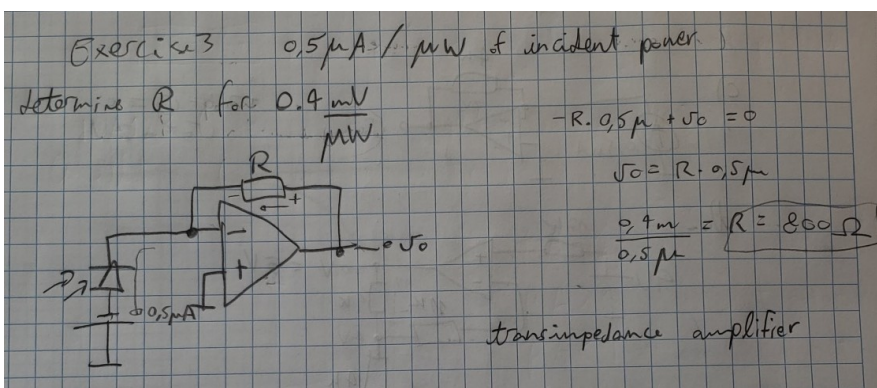 Exercise 3 0,5μA / μW of incident power
determine R for 0.4 mV/μW
-R. 0,5μ + vo = 0
vo = R. 0,5μ
0,4m/0,5μ = R = 800 Ω
R
- +
-
+
vo
0,5μA
transimpedance amplifier